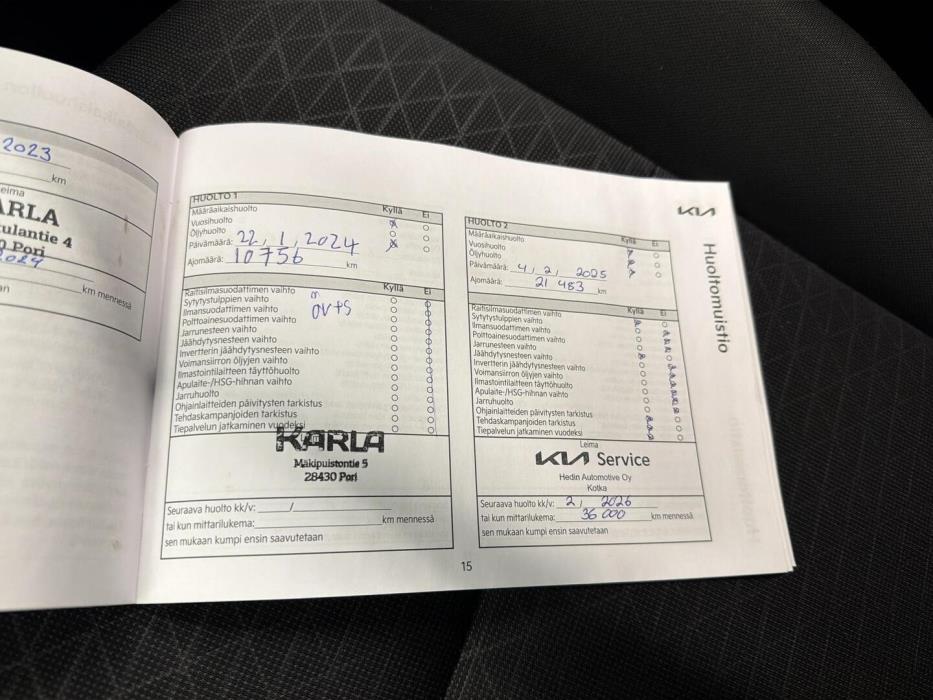 2023
km
eima
ARLA
ulantie 4
0 Pori
2024
an
km mennessä
HUOLTO 1
Kyllä Ei
Määräaikaishuolto
Vuosihuolto
Öljyhuolto
Päivämäärä: 22, 1, 2024
Ajomäärä: 10756 km
Kyllä Ei
Raitisilmasuodattimen vaihto
Sytytystulppien vaihto
Ilmansuodattimen vaihto
Polttoainesuodattimen vaihto
Jarrunesteen vaihto
Jäähdytysnesteen vaihto
Invertterin jäähdytysnesteen vaihto
Voimansiirron öljyjen vaihto
Ilmastointilaitteen täyttöhuolto
Apulaite-/HSG-hihnan vaihto
Jarruhuolto
Ohjainlaitteiden päivitysten tarkistus
Tehdaskampanjoiden tarkistus
Tiepalvelun jatkaminen vuodeksi
KARLA
Mäkipuistontie 5
28430 Pori
Seuraava huolto kk/v: /
tai kun mittarilukema: km mennessä
sen mukaan kumpi ensin saavutetaan
15
KIA
Huoltomuistio
HUOLTO 2
Kyllä Ei
Määräaikaishuolto
Vuosihuolto
Öljyhuolto
Päivämäärä: 4, 2, 2025
Ajomäärä: 21 483 km
Kyllä Ei
Raitisilmasuodattimen vaihto
Sytytystulppien vaihto
Ilmansuodattimen vaihto
Polttoainesuodattimen vaihto
Jarrunesteen vaihto
Jäähdytysnesteen vaihto
Invertterin jäähdytysnesteen vaihto
Voimansiirron öljyjen vaihto
Ilmastointilaitteen täyttöhuolto
Apulaite-/HSG-hihnan vaihto
Jarruhuolto
Ohjainlaitteiden päivitysten tarkistus
Tehdaskampanjoiden tarkistus
Tiepalvelun jatkaminen vuodeksi
Leima
KIA Service
Hedin Automotive Oy
Kotka
Seuraava huolto kk/v: 2, 2026
tai kun mittarilukema: 36 000 km mennessä
sen mukaan kumpi ensin saavutetaan